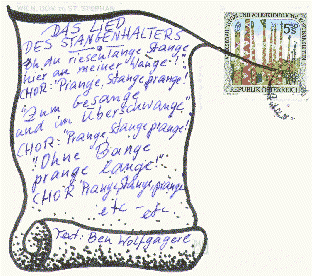 WIEN, DOM zu ST. STEPHAN
DAS LIED
DES STANGENHALTERS
"Oh du riesenlange Stange
hier an meiner Wange!"
CHOR: "Prange, Stange, prange!
"Zum Gesange
und im Überschwange"
CHOR: "Prange, Stange, prange!
"Ohne Bange
prange lange!"
CHOR Prange, Stange, prange
etc etc
Text: Ben Wolfgagere
5s
REPUBLIK ÖSTERREICH